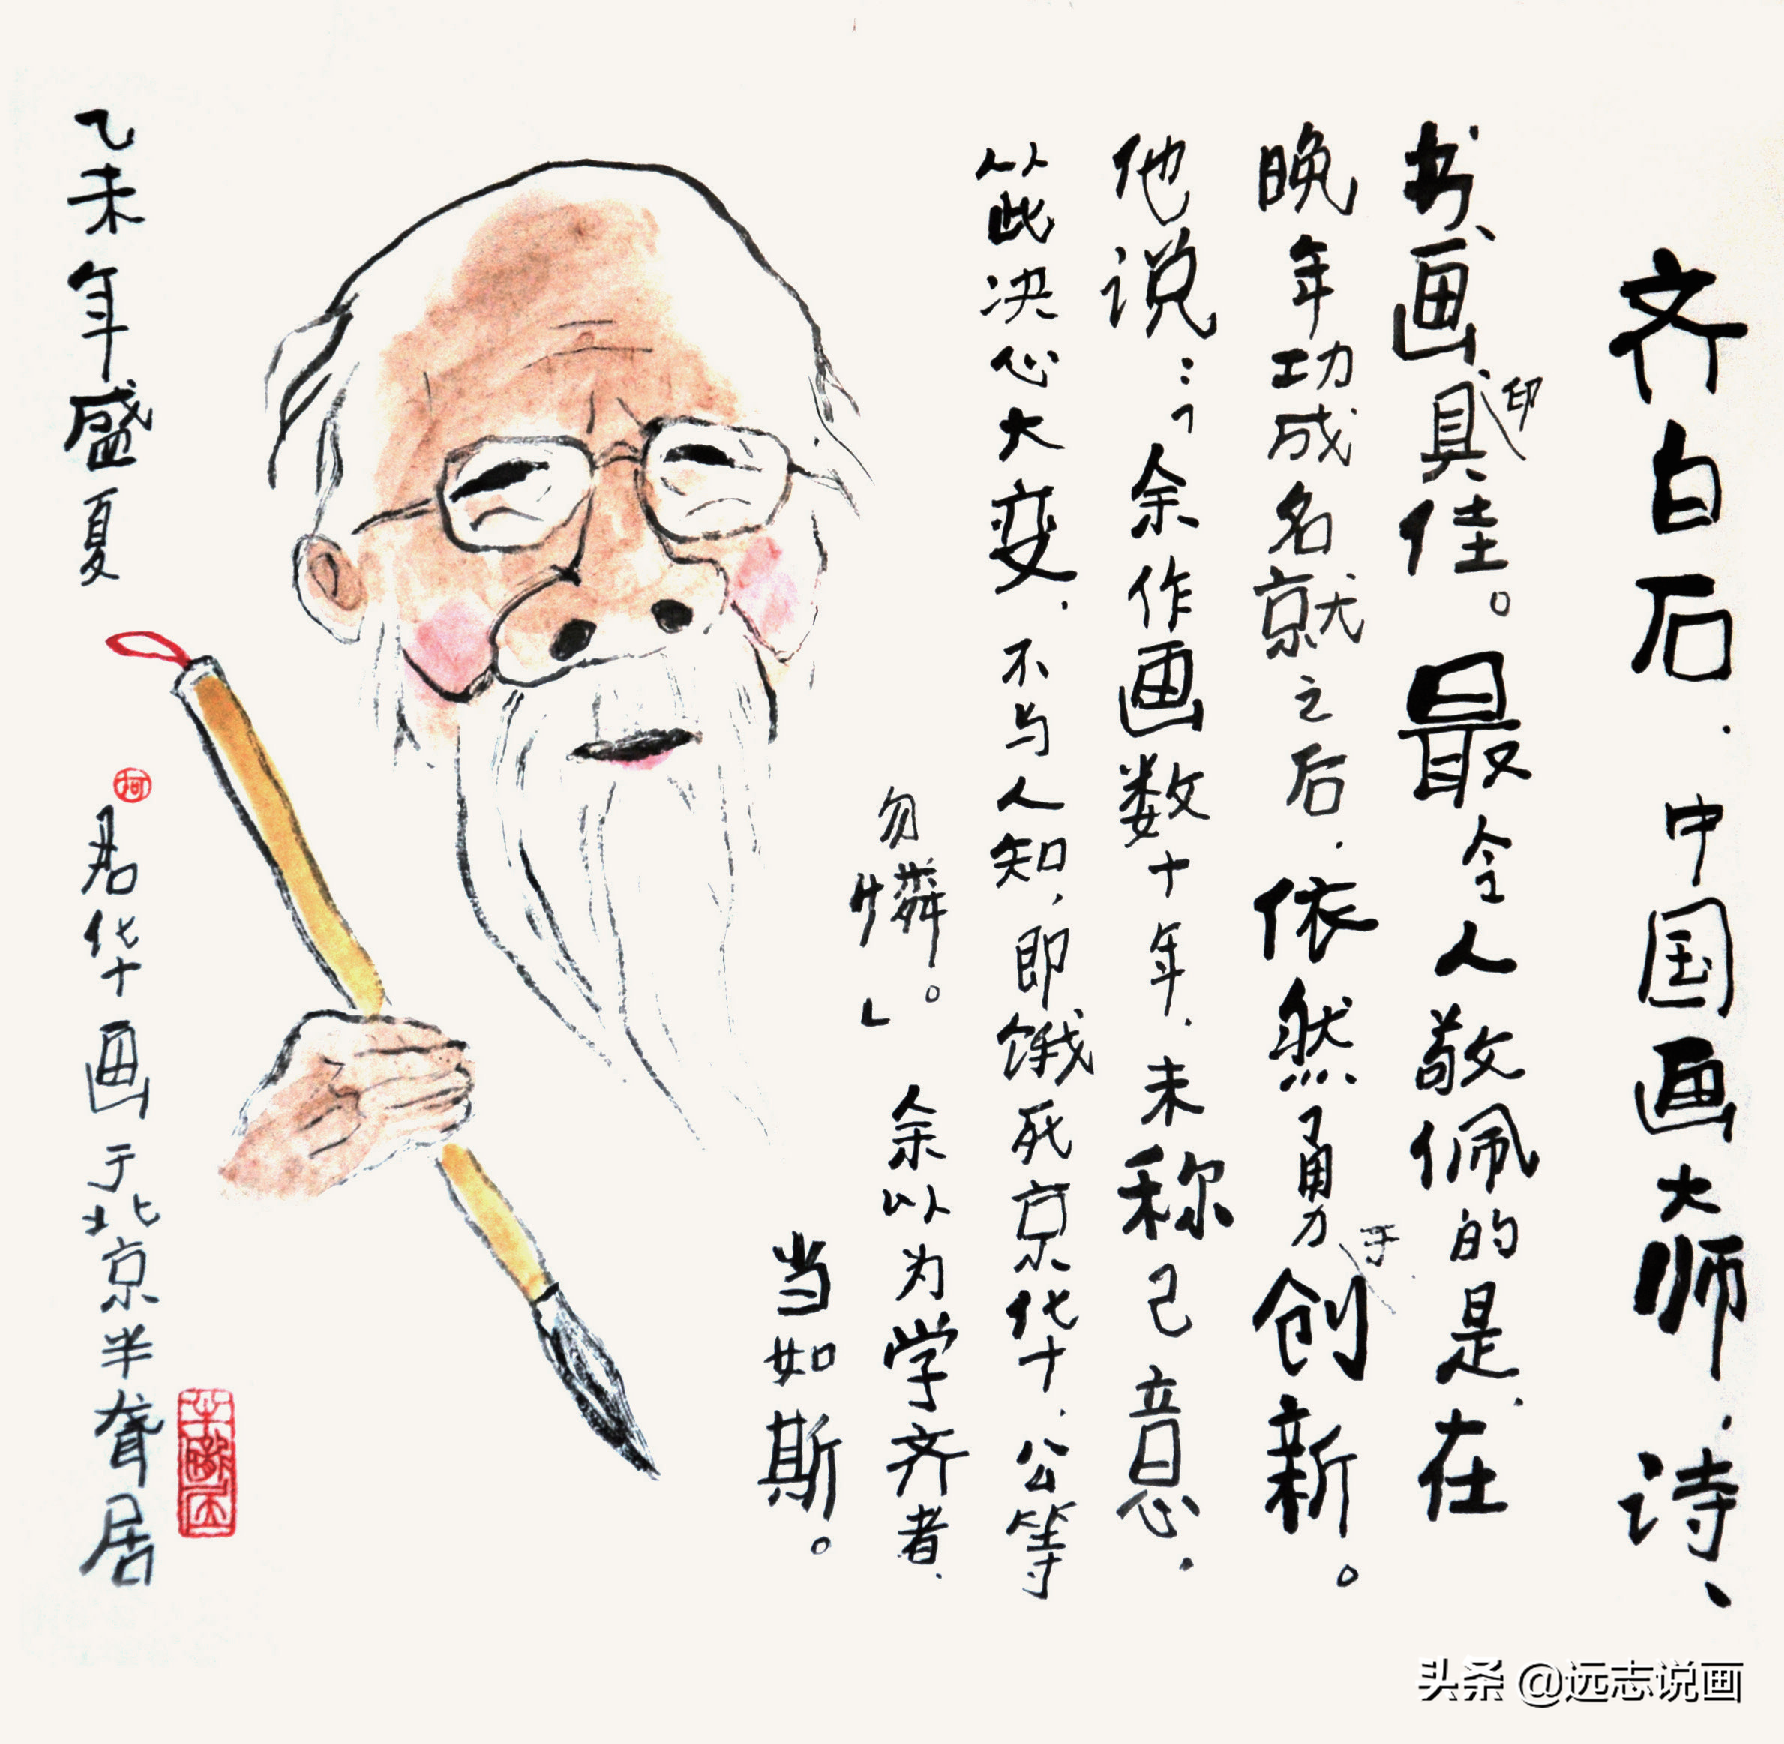 齐白石，中国画大师，诗、
书、画、印具佳。最令人敬佩的是，在
晚年功成名就之后，依然勇于创新。
他说：「余作画数十年，未称己意，
从此决心大变，不与人知，即饿死京华，公等
勿憐。」余以为学齐者，
当如斯。
乙未年盛夏
君华画于北京半聋居
头条 @远志说画